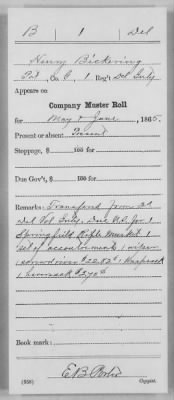 B 1 Del
Henry Bickering
Pvt, Co. C, 1 Reg't Del Infty
Appears on
Company Muster Roll
for May & June, 1865.
Present or absent Present
Stoppage, $ 100 for
Due Gov't, $ 100 for
Remarks: Transferred from 3d
Del Vol Infty, Due U.S. for 1
Springfield Rifle Musket 1
set of accoutrements 1 wiper
screwdriver 1 Knapsack
1 haversack
Book mark:
E B
(358) Copyist.